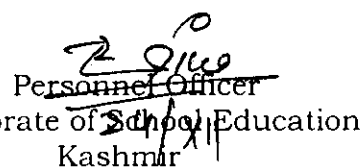 Personnel Officer
orate of School Education
Kashmir